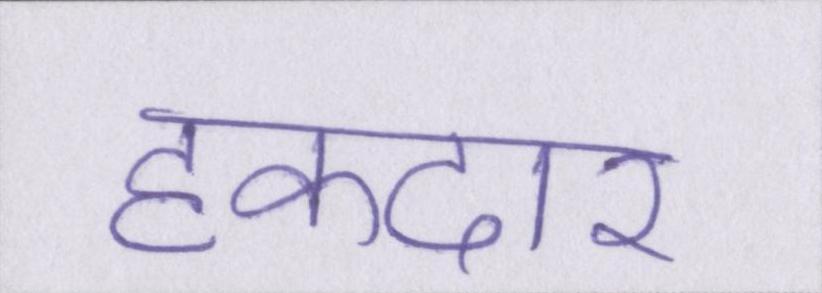 हकदार